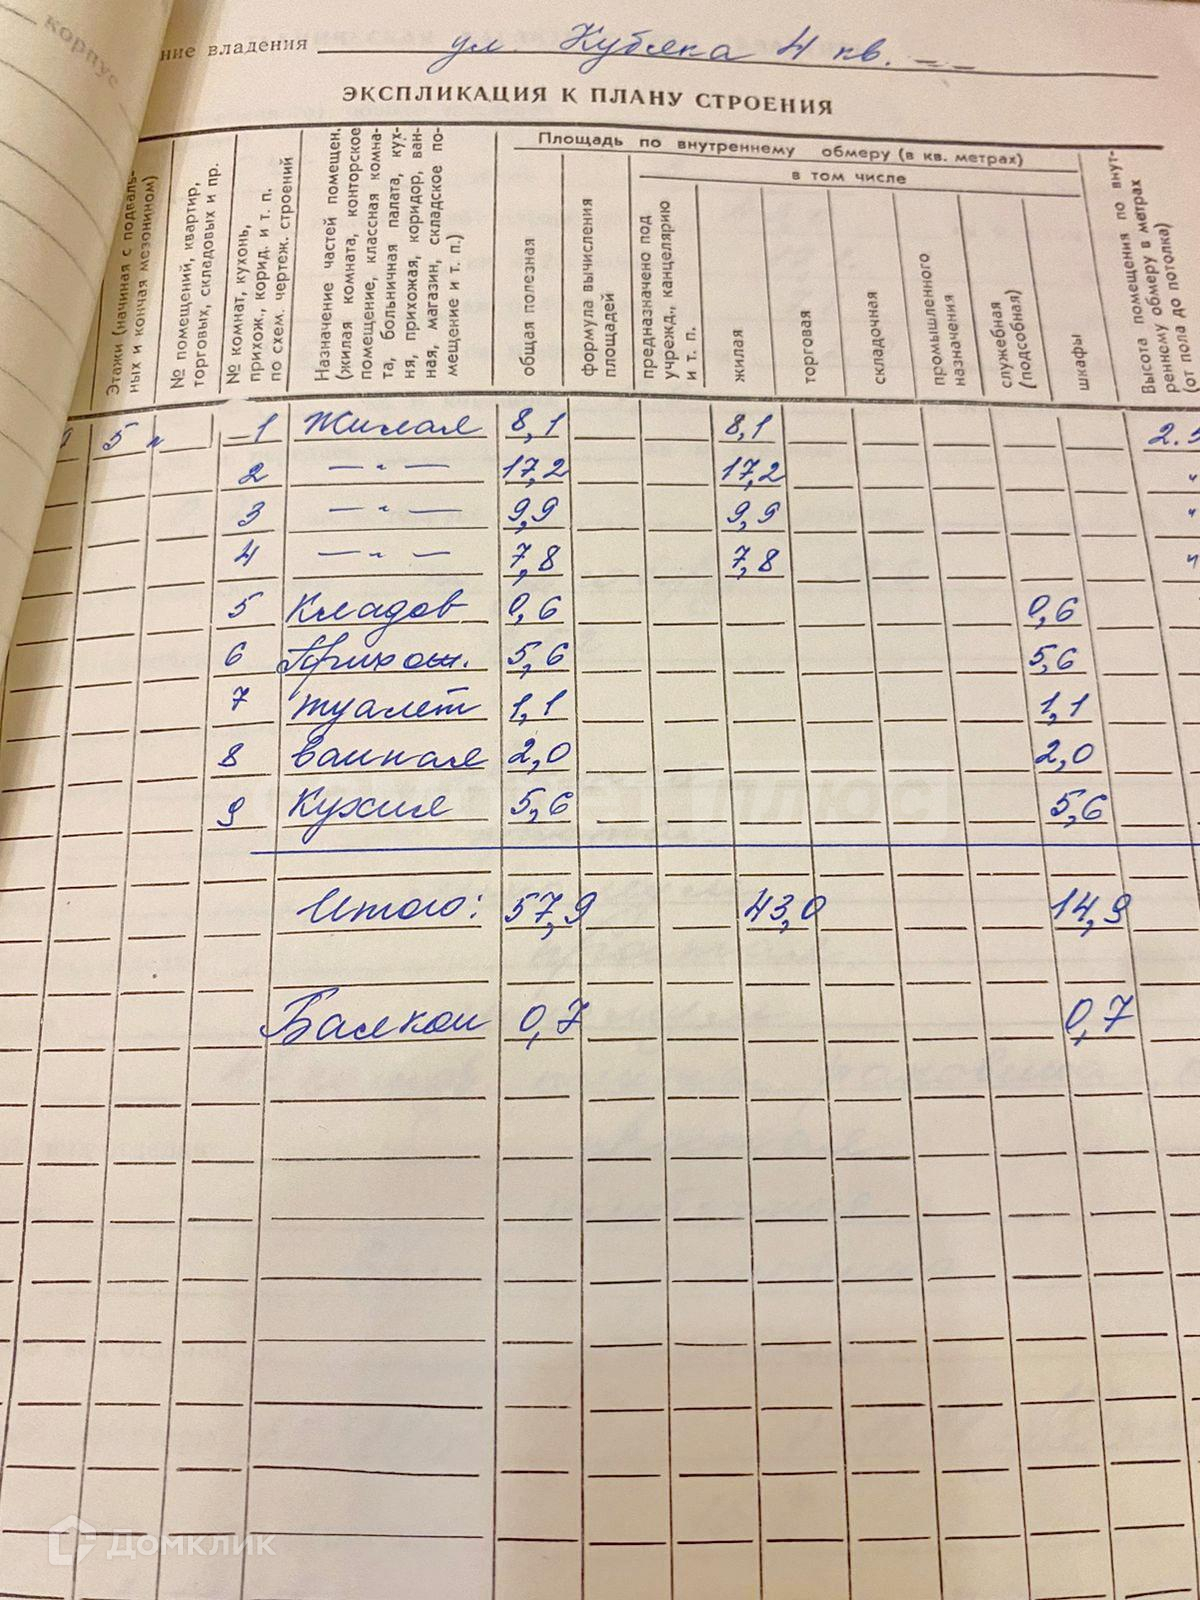 корпус
ние владения ул. Кубяка 4 кв.
ЭКСПЛИКАЦИЯ К ПЛАНУ СТРОЕНИЯ
Этажи (начиная с подваль-
ных и кончая мезонином)
№ помещений, квартир,
торговых, складовых и пр.
№ комнат, кухонь,
прихож., корид. и т. п.
по схем. чертеж. строений
Назначение частей помещен.
(жилая комната, конторское
помещение, классная комна-
та, больничная палата, кух-
ня, прихожая, коридор, ван-
ная, магазин, складское по-
мещение и т. п.)
Площадь по внутреннему обмеру (в кв. метрах)
общая полезная
формула вычисления
площадей
в том числе
предназначено под
учрежд., канцелярию
и т. п.
жилая
торговая
складочная
промышленного
назначения
служебная
(подсобная)
шкафы
Высота помещения по внут-
реннему обмеру в метрах
(от пола до потолка)
5 " 1 Жилая 8,1 8,1 2.5
2 — " — 17,2 17,2 "
3 — " — 9,9 9,9 "
4 — " — 7,8 7,8 "
5 Кладов 0,6 0,6
6 Прихож. 5,6 5,6
7 туалет 1,1 1,1
8 ванная 2,0 2,0
9 Кухня 5,6 5,6
Итого: 57,9 43,0 14,9
Балкон 0,7 0,7
Домклик